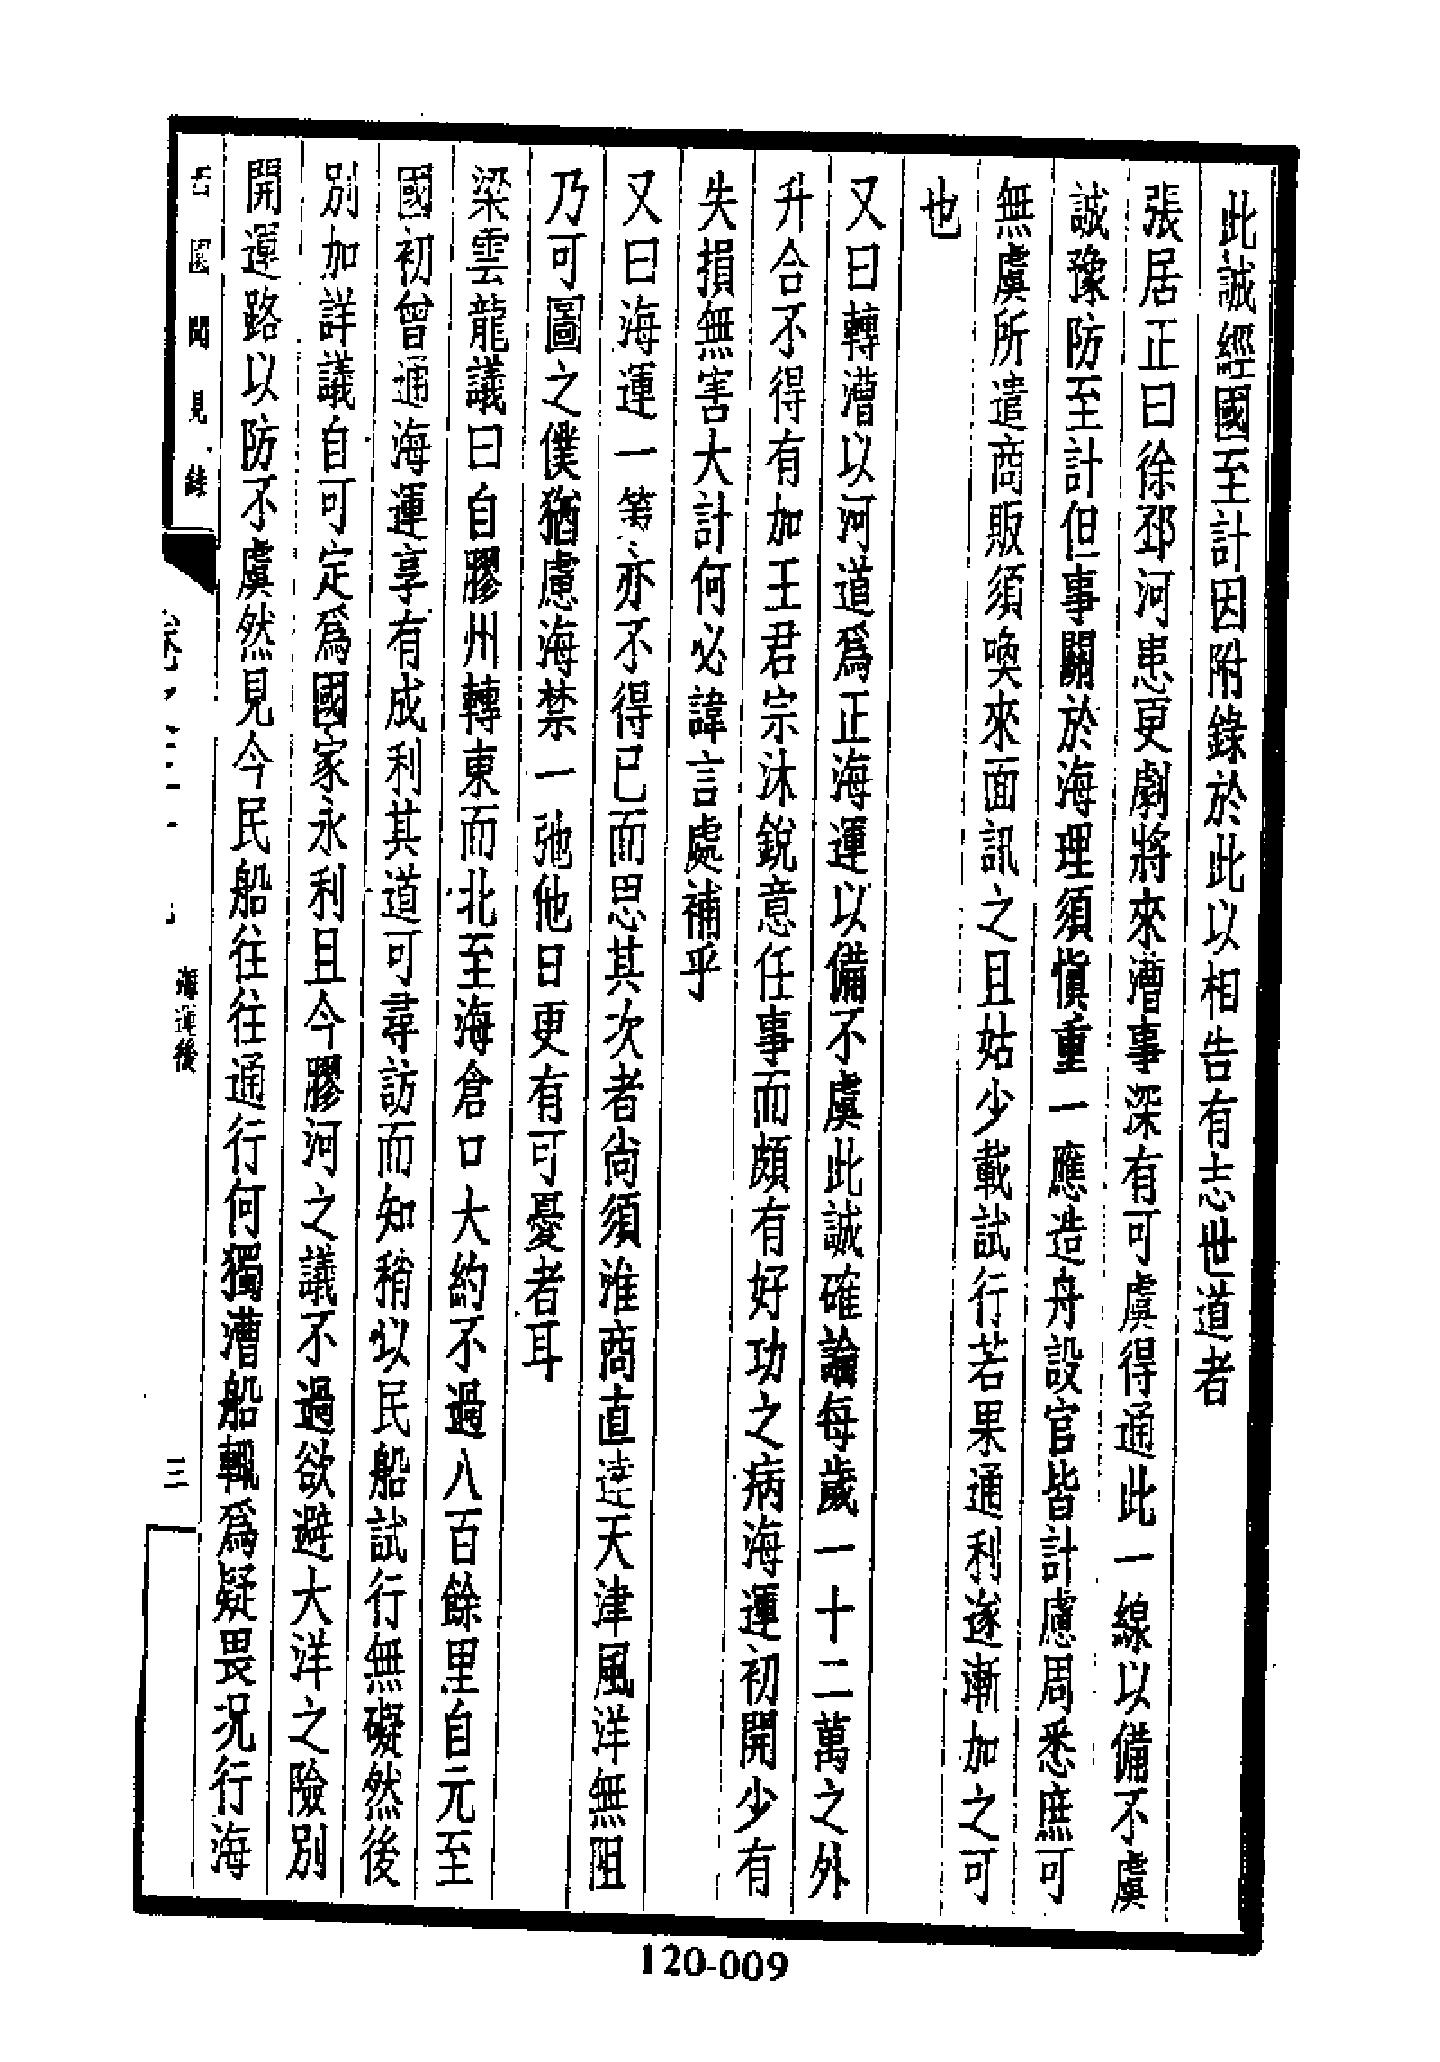 此誠經國至計因附錄於此以相告有志世道者
張居正曰徐邳河患更劇將來漕事深有可虞得通此一線以備不虞
誠豫防至計但事關於海理須慎重一應造舟設官皆計慮周悉庶可
無虞所遣商販須喚來面訊之且姑少載試行若果通利遂漸加之可
也
又曰轉漕以河道爲正海運以備不虞此誠確論每歲一十二萬之外
升合不得有加王君宗沐銳意任事而頗有好功之病海運初開少有
失損無害大計何必諱言處補乎
又曰海運一策亦不得已而思其次者尚須淮商直達天津風洋無阻
乃可圖之僕猶慮海禁一弛他日更有可憂者耳
梁雲龍議曰自膠州轉東而北至海倉口大約不過八百餘里自元至
國初曾通海運享有成利其道可尋訪而知稍以民船試行無礙然後
別加詳議自可定爲國家永利且今膠河之議不過欲避大洋之險別
開運路以防不虞然見今民船往往通行何獨漕船輒爲疑畏況行海
聞見錄
海運後
三
120-009